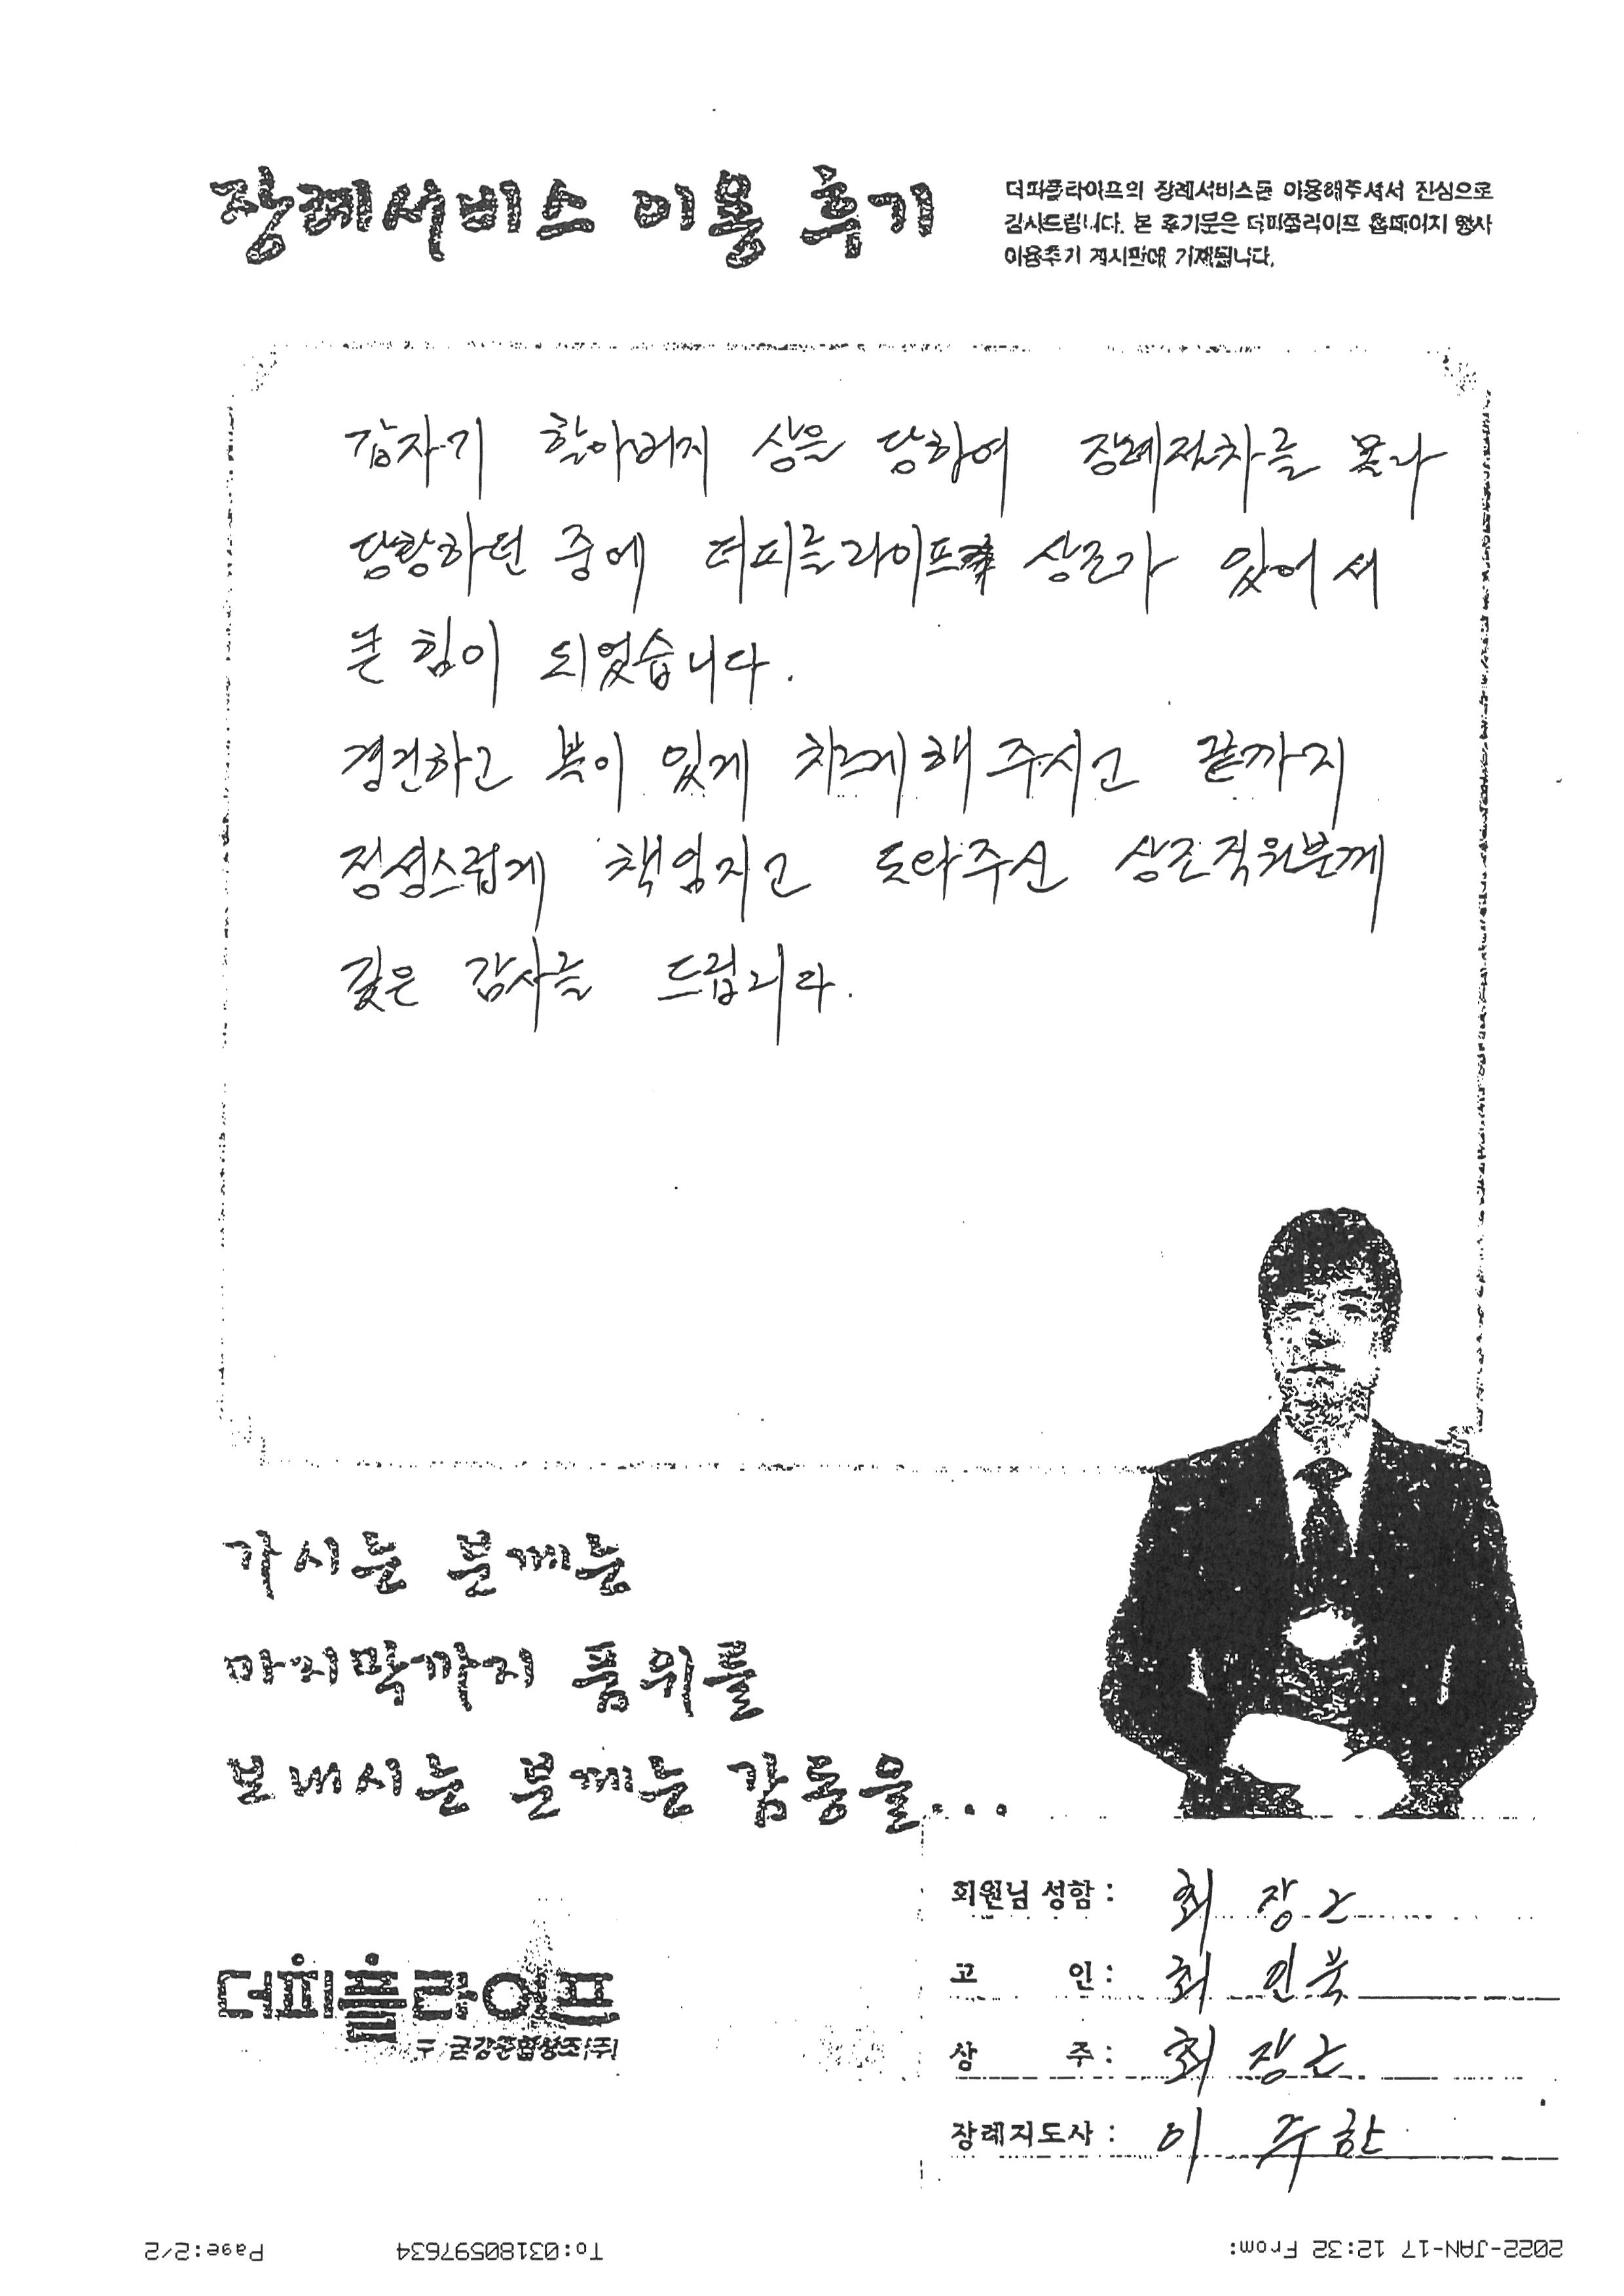 장례서비스 이용 후기
더피플라이프의 장례서비스를 이용해주셔서 진심으로
감사드립니다. 본 후기문은 더피플라이프 홈페이지 행사
이용후기 게시판에 기재됩니다.
갑자기 할아버지 상을 당하여 장례절차를 몰라
당황하던 중에 더피플라이프 상조가 있어서
큰 힘이 되었습니다.
경건하고 복이 있게 차례해주시고 끝까지
정성스럽게 책임지고 도와주신 상조직원분께
깊은 감사를 드립니다.
가시는 분께는
마지막까지 품위를
보내시는 분께는 감동을...
회원님 성함 : 최장근
고 인 : 최인북
상 주 : 최장근
장례지도사 : 이주한
더피플라이프
금강종합상조(주)
2022-JAN-17 12:32 From: To:03180597634 Page:2/2